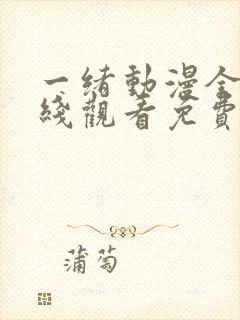 一绪動漫全
綫觀看免費
蒲萄